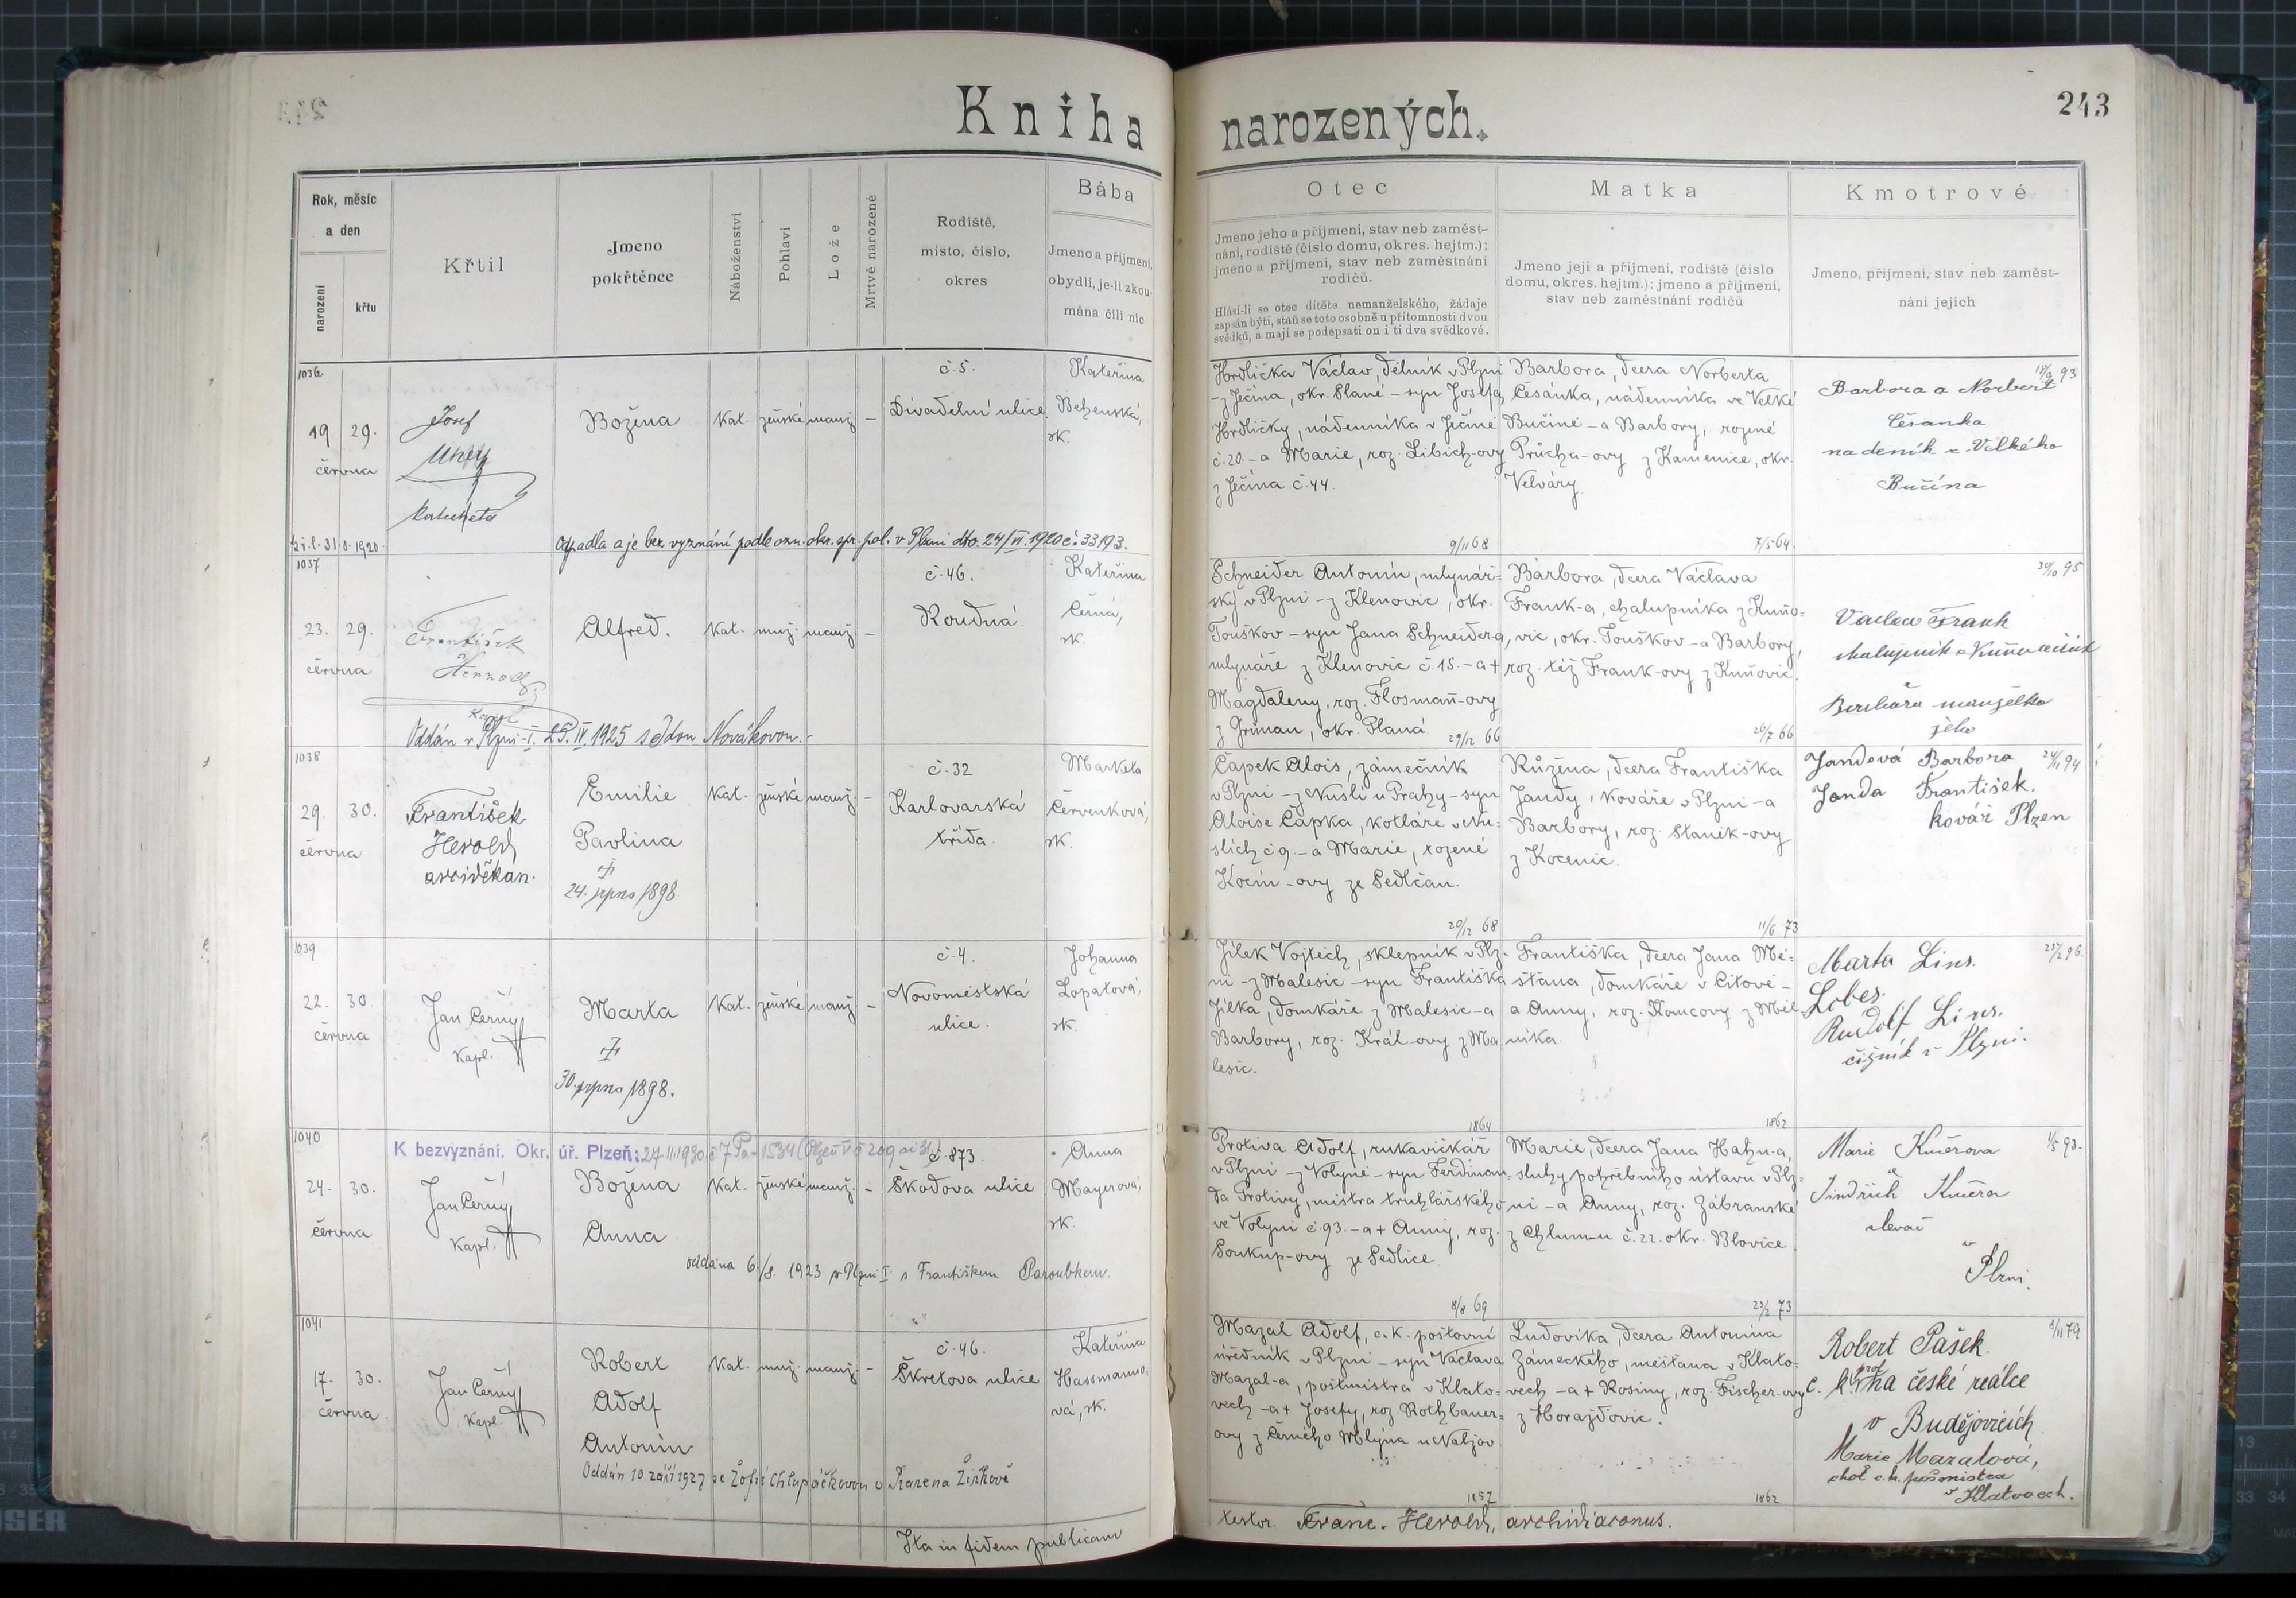 Kniha narozených.
243
Rok, měsíc
a den
narození
křtu
Křtil
Jmeno
pokřtěnce
Náboženství
Pohlaví
Lože
Mrtvě narozené
Rodiště,
místo, číslo,
okres
Bába
Jmeno a příjmení,
obydlí, je-li zkou-
mána čili nic
Otec
Jmeno jeho a příjmení, stav neb zaměst-
nání, rodiště (číslo domu, okres. hejtm.);
jmeno a příjmení, stav neb zaměstnání
rodičů.
Hlásí-li se otec dítěte nemanželského, žádaje
zapsán býti, staň se toto osobně u přítomnosti dvou
svědků, a mají se podepsati on i ti dva svědkové.
Matka
Jmeno její a příjmení, rodiště (číslo
domu, okres. hejtm.); jmeno a příjmení,
stav neb zaměstnání rodičů
Kmotrové
Jmeno, příjmení, stav neb zaměst-
nání jejich
1036
19 29.
června
Josef
Božena
Kat. ženské manž. –
č. 5.
Divadelní ulice
Kateřina
sk.
Hrdlička Václav, dělník v Plzni
– z Ječína, okr. Slané – syn Josefa
Hrdličky, nádenníka v Ječíně
č. 20. – a Marie, roz. Libich-ovy
z Ječína č. 44.
Barbora, dcera Norberta
Česánka, nádenníka ve Velké
Bučině – a Barbory, rozené
Průcha-ovy z Kamenice, okr.
Velváry
18/9 93
Barbora a Norbert
Česanka
nadeník z Velkého
Bučína
Odpadla a je bez vyznání podle ozn. okr. spr. pol. v Plzni dto. 24/VI. 1920 č. 33193.
9/11 68
7/5 64.
1037
23. 29.
června
František
Herold
Alfred.
Kat. muž. manž. –
č. 46.
Roudná
Kateřina
Černá,
sk.
Schneider Antonín, mlynář-
ský v Plzni – z Klenovic, okr.
Touškov – syn Jana Schneider-a,
mlynáře z Klenovic č. 15. – a +
Magdaleny, roz. Flosmann-ovy
okr. Planá.
Barbora, dcera Václava
Frank-a, chalupníka z Kuňo-
vic, okr. Touškov – a Barbory,
roz. též Frank-ovy z Kuňovic.
30/10 95
Vaclav Frank
Barbora manželka
jeho
Oddán v Plzni-I. 25. IV. 1925 s Idou Novákovou. –
29/12 66
20/7 66
1038
29. 30.
června
František
Herold
arciděkan.
Emilie
Pavlina
24. srpna 1898
Kat. ženské manž. –
č. 32
Karlovarská
třída.
Marketa
Červenková,
sk.
Čapek Alois, zámečník
v Plzni – z Nuslí u Prahy – syn
Aloise Čapka, kotláře v Nu-
slích č 9. – a Marie, rozené
Kocin-ovy ze Sedlčan.
Růžena, dcera Františka
Jandy, kováře v Plzni – a
Barbory, roz. Staněk-ovy
z Kocenic.
24/11 94
Jandová Barbora
Janda František.
kovář Plzen
20/12 68
11/6 73
1039
22. 30.
června
Jan Černý
Kapl.
Marta
30. srpna 1898.
Kat. ženské manž. –
č. 4.
Novoměstská
ulice.
Johanna
Lopatová,
sk.
Jílek Vojtěch, sklepník v Plz-
ni – z Malesic – syn Františka
Jílka, domkáře z Malesic – a
Barbory, roz. Král-ovy z Ma-
lesic.
Františka, dcera Jana Mě-
šťana, domkáře v Citově –
a Anny, roz. Komcovy z Měl-
níka.
23/2 96.
Marta Lins.
Lobes.
Rudolf Lins.
číšník v Plzni.
1864
1862
1040
K bezvyznání. Okr. úř. Plzeň:
24. 30.
června
Jan Černý
Kapl.
Božena
Anna
Kat. ženské manž. –
č. 873.
Škodova ulice
Anna
Mayerová,
sk.
Protiva Adolf, rukavičkář
v Plzni – z Volyně – syn Ferdinan-
da Protivy, mistra truhlářského
ve Volyni č. 93. – a + Anny, roz.
Soukup-ovy ze Sedlice.
Marie, dcera Jana Hahn-a,
sluhy pohřebního ústavu v Plz-
ni – a Anny, roz. Zábranské
z Chlum-u č. 22. okr. Blovice.
1/5 93.
Marie Kučerova
Jindřich Kučera
slevač
v
Plzni.
oddána 6./8. 1923 v Plzni I s Františkem Paroubkem.
8/8 69
23/2 73
1041
17. 30.
června
Jan Černý
Kapl.
Robert
Adolf
Antonín
Kat. muž. manž. –
č. 46.
Škretova ulice
Kateřina
Hassmanno-
vá, sk.
Mazal Adolf, c. k. poštovní
úředník v Plzni – syn Václava
Mazal-a, poštmistra v Klato-
vech – a + Josefy, roz Rothbauer-
ovy z Černého Mlýna u Nalžov
Ludovika, dcera Antonína
Zámeckého, měšťana v Klato-
vech – a + Rosiny, roz. Fischer-ovy
z Horažďovic.
8/11 79
Robert Pašek.
c. k. prof. na české reálce
v Budějovicích
Marie Mazalová,
choť c. k. pošmistra
v Klatovech.
Oddán 10. září 1927 se Žofií Chlupáčkovou v Praze na Žižkově
1857
1862
Ita in fidem publicam
testor. Franc. Herold, archidiaconus.